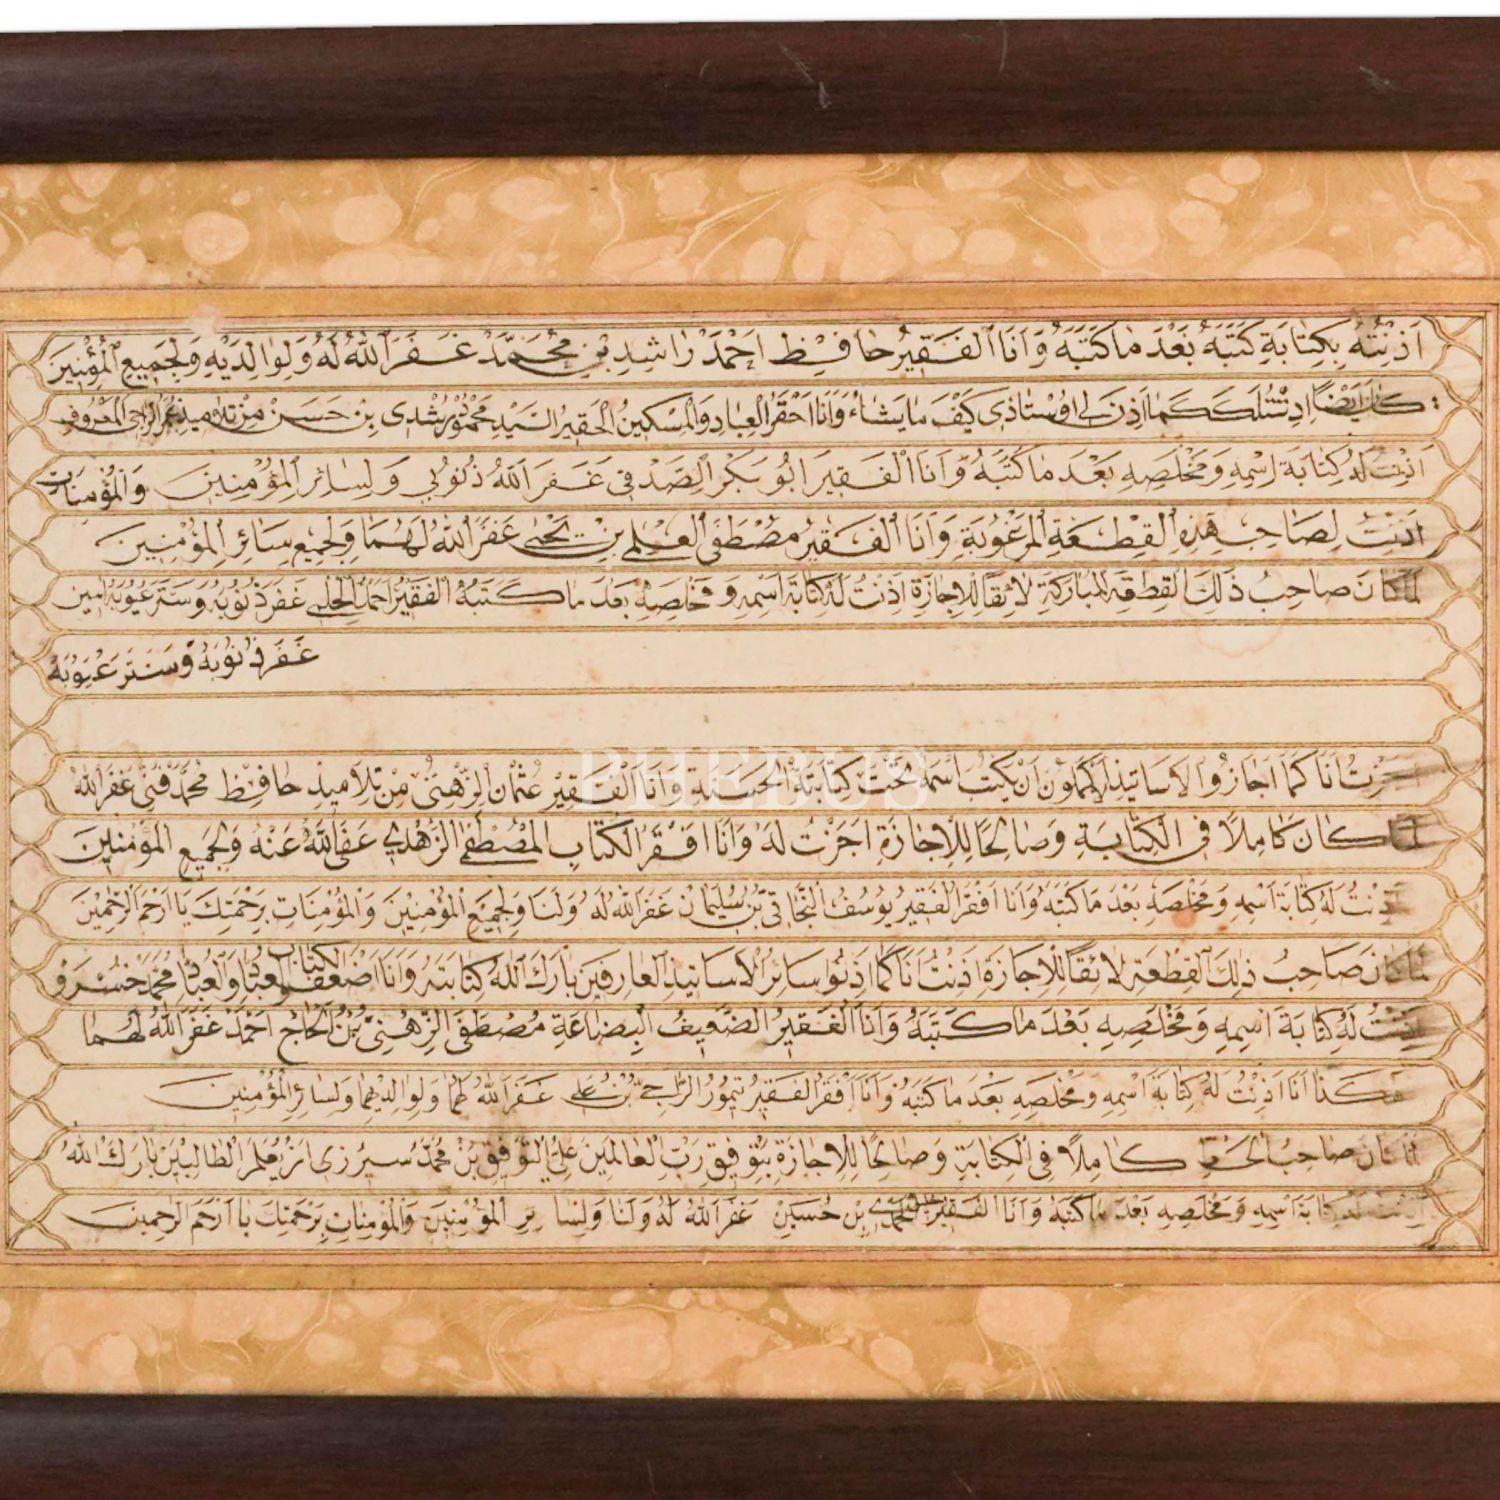 اَذِنْتُهُ بِكِتَابَةِ كَتَبَهُ بَعْدَ مَا كَتَبَهُ وَاَنَا الْفَقِيرُ حَافِظ اَحْمَدْ رَاشِدِ بْنِ مُحَمَّدْ غَفَرَ اللهُ لَهُ وَلِوَالِدَيْهِ وَلِجَمِيعِ الْمُؤْمِنِينَ
اَيْضًا كَمَا اَذِنَ لِي اُوسْتَاذِي كَيْفَ مَا يَشَاءُ وَاَنَا اَحْقَرُ الْعِبَادِ وَالْمِسْكِينُ الْحَقِيرُ السَّيِّدْ مَحْمُودْ رُشْدِي بِنْ حَسَنْ مِنْ تَلَامِيذِ عُمَرَ الرَّاجِي الْمَعْرُوفِ
اَذِنْتُ لَهُ كِتَابَةَ اِسْمِهِ وَمَخْلَصِهِ بَعْدَ مَا كَتَبَهُ وَاَنَا الْفَقِيرَ اَبُو بَكْرِ الصِّدْقِي غَفَرَ اللهُ ذُنُوبِي وَلِسَائِرِ الْمُؤْمِنِينَ وَالْمُؤْمِنَاتِ
اَذِنْتُ لِصَاحِبِ هَذِهِ الْقِطْعَةِ الْمَرْغُوبَةِ وَاَنَا الْفَقِيرُ مُصْطَفَى الْعِلْمِي بْنِ يَحْيَى غَفَرَ اللهُ لَهُمَا وَلِجَمِيعِ سَائِرِ الْمُؤْمِنِينَ
لَمَّا كَانَ صَاحِبُ ذَلِكَ الْقِطْعَةِ الْمُبَارَكَةِ لَائِقًا لِلْاِجَازَةِ اَذِنْتُ لَهُ كِتَابَةَ اِسْمِهِ وَمَخْلَصِهِ بَعْدَ مَا كَتَبَهُ الْفَقِيرُ اَحْمَدُ الْحِلْمِي غَفَرَ ذُنُوبَهُ وَسَتَرَ عُيُوبَهُ اٰمِين
غَفَرَ ذُنُوبَهُ وَسَتَرَ عُيُوبَهُ
اَجَزْتُ اَنَا كَمَا اَجَازُوا الْاَسَاتِيذُ الْاَكْمَلُونَ اَنْ يَكْتُبَ اِسْمَهُ تَحْتَ كِتَابَتِهِ الْحَسَنَةِ وَاَنَا الْفَقِيرُ عُثْمَانُ الزِّهْنِيُّ مِنْ تَلَامِيذِ حَافِظ مُحَمَّدْ غَفَرَ اللهُ
لَمَّا كَانَ كَامِلًا فِي الْكِتَابَةِ وَصَالِحًا لِلْاِجَازَةِ اَجَزْتُ لَهُ وَاَنَا اَفْقَرُ الْكُتَّابِ الْمُصْطَفَى الزُّهْدِي عَفَى اللهُ عَنْهُ وَلِجَمِيعِ الْمُؤْمِنِينَ
اَذِنْتُ لَهُ كِتَابَةَ اِسْمِهِ وَمَخْلَصِهِ بَعْدَ مَا كَتَبَهُ وَاَنَا اَفْقَرُ الْفَقِيرُ يُوسُفُ النَّجَاتِيُّ بْنُ سُلَيْمَانْ غَفَرَ اللهُ لَهُ وَلَنَا وَلِجَمِيعِ الْمُؤْمِنِينَ وَالْمُؤْمِنَاتِ بِرَحْمَتِكَ يَا اَرْحَمَ الرَّاحِمِينَ
لَمَّا كَانَ صَاحِبُ ذَلِكَ الْقِطْعَةِ لَائِقًا لِلْاِجَازَةِ اَذِنْتُ اَنَا كَمَا اَذِنُوا سَائِرُ الْاَسَاتِيذِ الْعَارِفِينَ بَارَكَ اللهُ كِتَابَتَهُ وَاَنَا اَضْعَفُ الْكُتَّابِ مُحَمَّدْ خُسْرَوْ
اَذِنْتُ لَهُ كِتَابَةَ اِسْمِهِ وَمَخْلَصِهِ بَعْدَ مَا كَتَبَهُ وَاَنَا الْفَقِيرُ الضَّعِيفُ الْبِضَاعَةِ مُصْطَفَى الزِّهْنِيُّ بْنُ الْحَاجّ اَحْمَدْ غَفَرَ اللهُ لَهُمَا
هَكَذَا اَنَا اَذِنْتُ لَهُ كِتَابَةَ اِسْمِهِ وَمَخْلَصِهِ بَعْدَ مَا كَتَبَهُ وَاَنَا اَفْقَرُ الْفَقِيرُ تَيْمُورُ الرَّاجِيُّ بْنُ عَلِي غَفَرَ اللهُ لَهُمَا وَلِوَالِدَيْهِمَا وَلِسَائِرِ الْمُؤْمِنِينَ
لَمَّا كَانَ صَاحِبُ الْخَطِّ كَامِلًا فِي الْكِتَابَةِ وَصَالِحًا لِلْاِجَازَةِ بِتَوْفِيقِ رَبِّ الْعَالَمِينَ عَلِيُّ التَّوْفِيقِ بْنُ مُحَمَّدْ سِيرُوزِي الطَّالِبِينَ بَارَكَ اللهُ
اَذِنْتُ لَهُ كِتَابَةَ اِسْمِهِ وَمَخْلَصِهِ بَعْدَ مَا كَتَبَهُ وَاَنَا الْفَقِيرُ بْنِ حُسَيْنْ غَفَرَ اللهُ لَهُ وَلَنَا وَلِسَائِرِ الْمُؤْمِنِينَ وَالْمُؤْمِنَاتِ بِرَحْمَتِكَ يَا اَرْحَمَ الرَّاحِمِينَ
PHEBUS